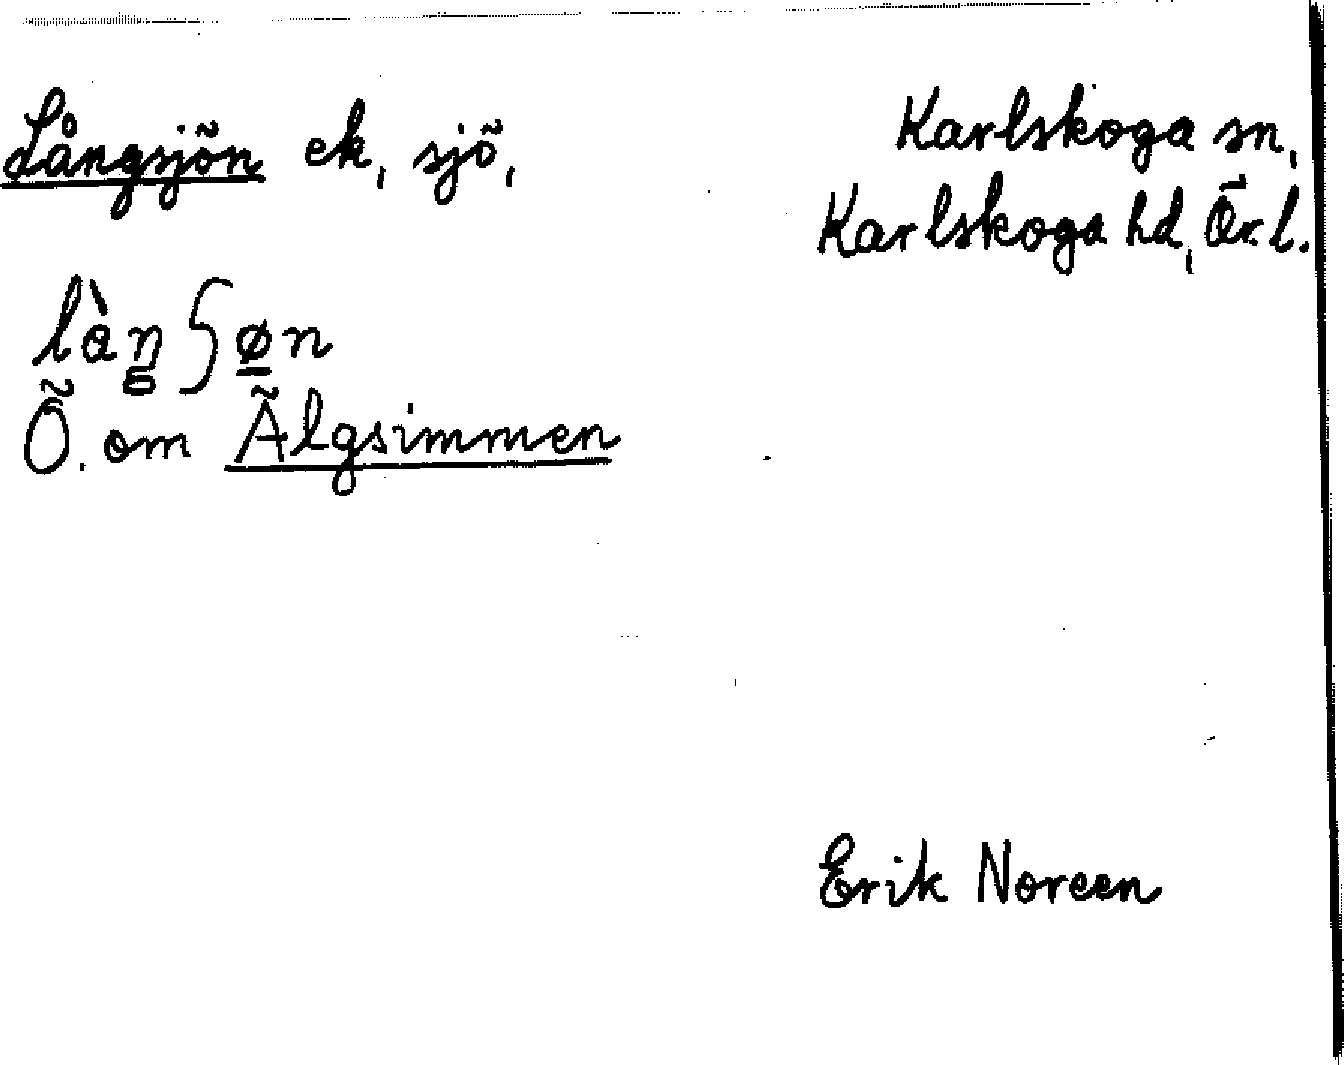 Långsjön ek, sjö,
Karlskoga sn,
Karlskoga hd, Ör. l.
Ö. om Älgsimmen
Erik Noreen